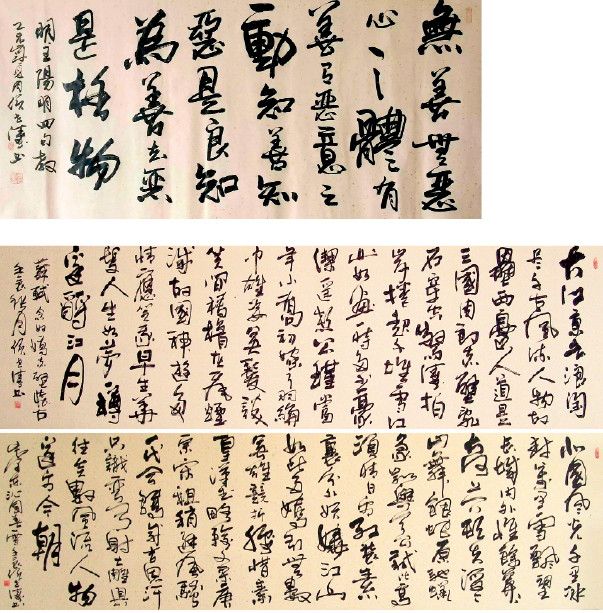 無善無惡
心之體有
善有惡意之
動知善知
惡是良知
為善去惡
是格物
明王陽明四句教
大江東去浪淘
尽千古風流人物故
壘西邊人道是
三國周郎赤壁亂
石穿空驚濤拍
岸捲起千堆雪江
山如畫一時多少豪
傑遙想公瑾當
年小喬初嫁了羽綸
巾雄姿英發談
笑間檣櫓灰飛煙
滅故國神遊多
情應笑我早生華
髮人生如夢一樽
還酹江月
蘇軾念奴嬌赤壁懷古
北國風光千里冰
封萬里雪飄望
長城內外惟餘莽
莽大河上下頓失滔滔
山舞銀蛇原馳蠟
象欲與天公試比高
須晴日看紅裝素
裹分外妖嬈江山
如此多嬌引無數
英雄競折腰惜秦
皇漢武略輸文采唐
宗宋祖稍遜風騷
一代天驕成吉思汗
只識彎弓射大雕俱
往矣數風流人物
還看今朝